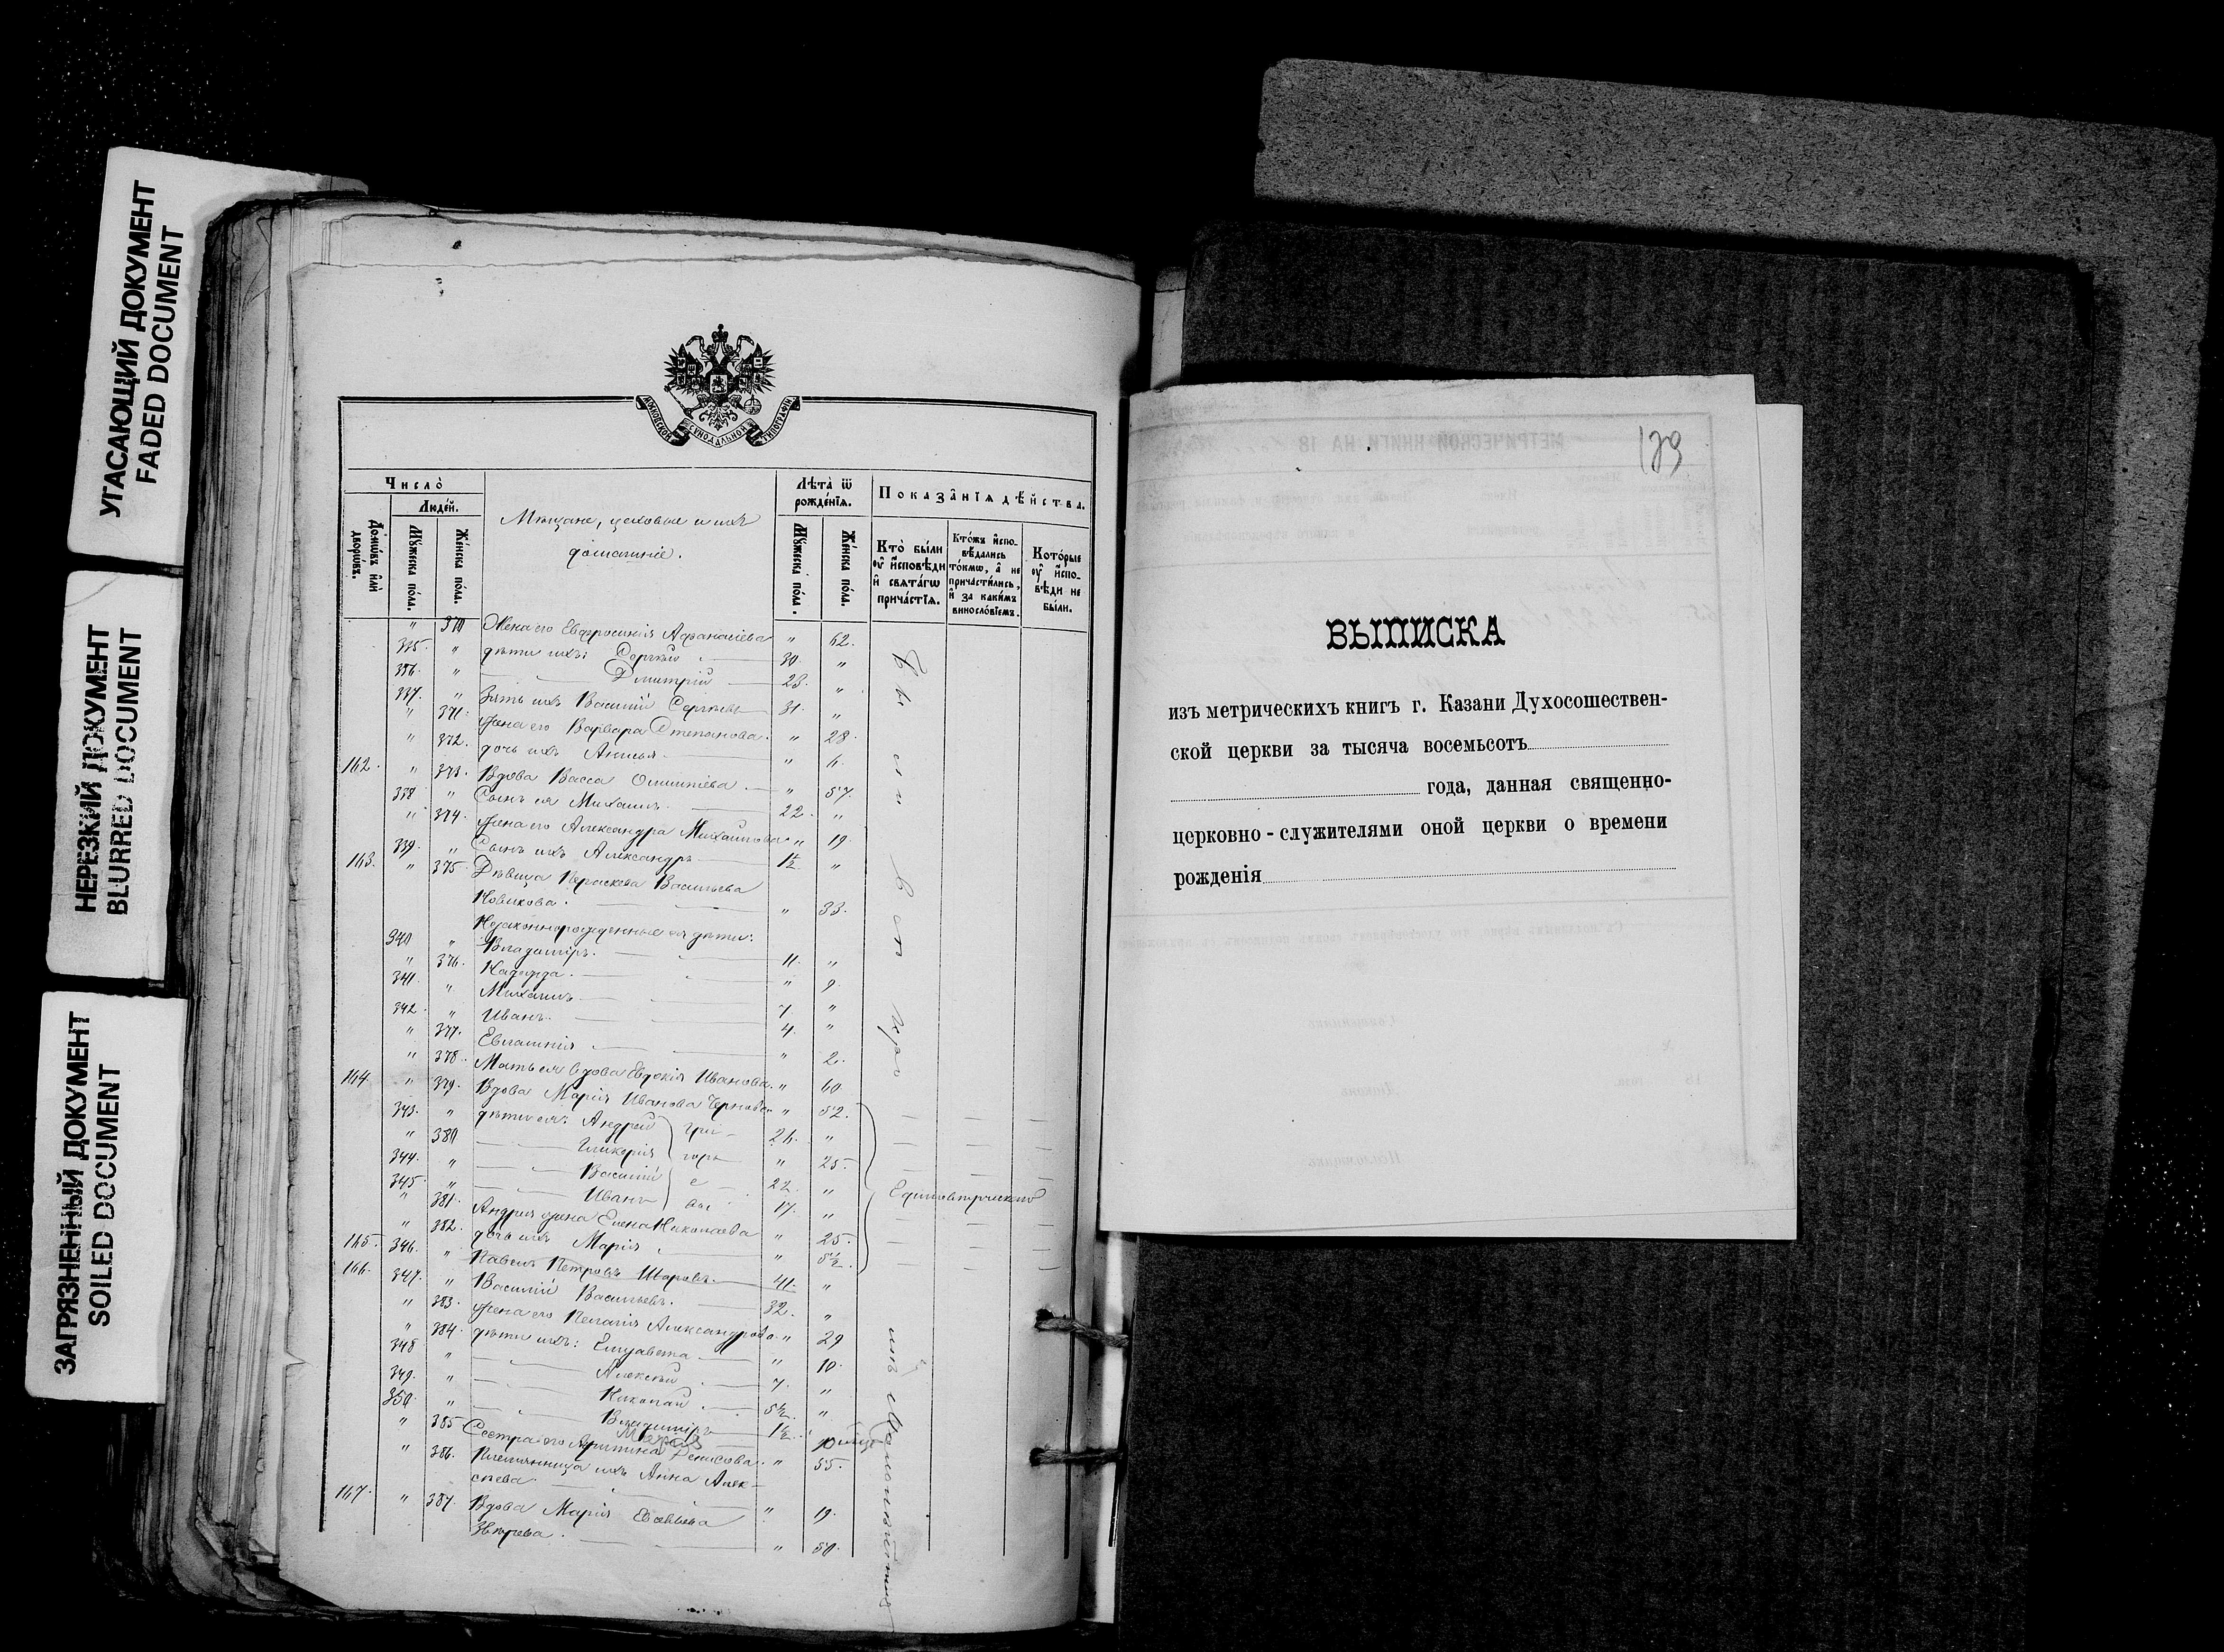 УГАСАЮЩИЙ ДОКУМЕНТ
FADED DOCUMENT
НЕРЕЗКИЙ ДОКУМЕНТ
BLURRED DOCUMENT
ЗАГРЯЗНЕННЫЙ ДОКУМЕНТ
SOILED DOCUMENT
МОСКОВСКОЙ СѴНОДАЛЬНОЙ ТИПОГРАФІИ
Число̀
Людей.
Домѡвъ и҆лѝ дворѡвъ.
Мꙋжеска пола.
Женска пола.
Мѣщане, цеховые и ихъ
домашніе.
Лѣта ѿ рожденїѧ.
Мꙋжеска пола.
Женска пола.
Показанїѧ дѣйства.
Кто̀ были ᲂу҆ и҆сповѣди и҆ свѧтагѡ причастїѧ.
Кто́жъ и҆сповѣдались то́кмѡ, а҆ не причастились, и҆ за какимъ винословїемъ.
Которые ᲂу҆ и҆сповѣди не были.
" 370 Жена его Евфросинія Афанасіева " 62.
335. " дѣти ихъ: Сергѣй 30. "
336. " Димитрій 23. "
337. " Зять ихъ Василій Сергѣевъ 31. "
" 371. Жена его Варвара Степанова. " 28.
" 372. дочь ихъ Анисья. " 6.
162. " 373. Вдова Васса " 57.
338 " Сынъ ея Михаилъ. 22. "
" 374. Жена его Александра Михайлова " 19.
339. " Сынъ ихъ Александръ 1½ "
163. " 375. Дѣвица Параскева Васильева
Новикова. " 33.
Незаконнорожденные ея дѣти:
340 " Владиміръ. 11. "
" 376. Надежда. " 9.
341. " Михаилъ 7 "
342. " Иванъ. 4. "
" 377. Евлампія " 2.
" 378. Мать ея вдова Евдокія Иванова. " 60
164. " 379. Вдова Марія Иванова Чернова " 52.
343. " дѣти ея: Андрей Гри- 26. "
" 380 Гликерія горь " 25.
344. " Василій е 22. "
345. " Иванъ вы 17. "
Единовѣрческаго
" 381. Андрея жена Елена Николаева " 25.
" 382. дочь ихъ Марія. " 5½.
165. 346. " Павелъ Петровъ Шаровъ. 41. "
166. 347. " Василій Васильевъ. 32. "
" 383. Жена его Пелагія Александрова. " 29
" 384. дѣти ихъ: Елизавета " 10.
348 " Алексѣй 7. "
349. " Николай 5½. "
350. " Владиміръ 1½. "
Марія 10 мѣс
" 385 Сестра его Денисова. " 55.
" 386. Племянница ихъ Анна Алек-
сѣева " 19.
167. " 387. Вдова Марія
Звѣрева. " 50.
129
ВЫПИСКА
изъ метрическихъ книгъ г. Казани Духосошествен-
ской церкви за тысяча восемьсотъ
года, данная священно-
церковно-служителями оной церкви о времени
рожденія